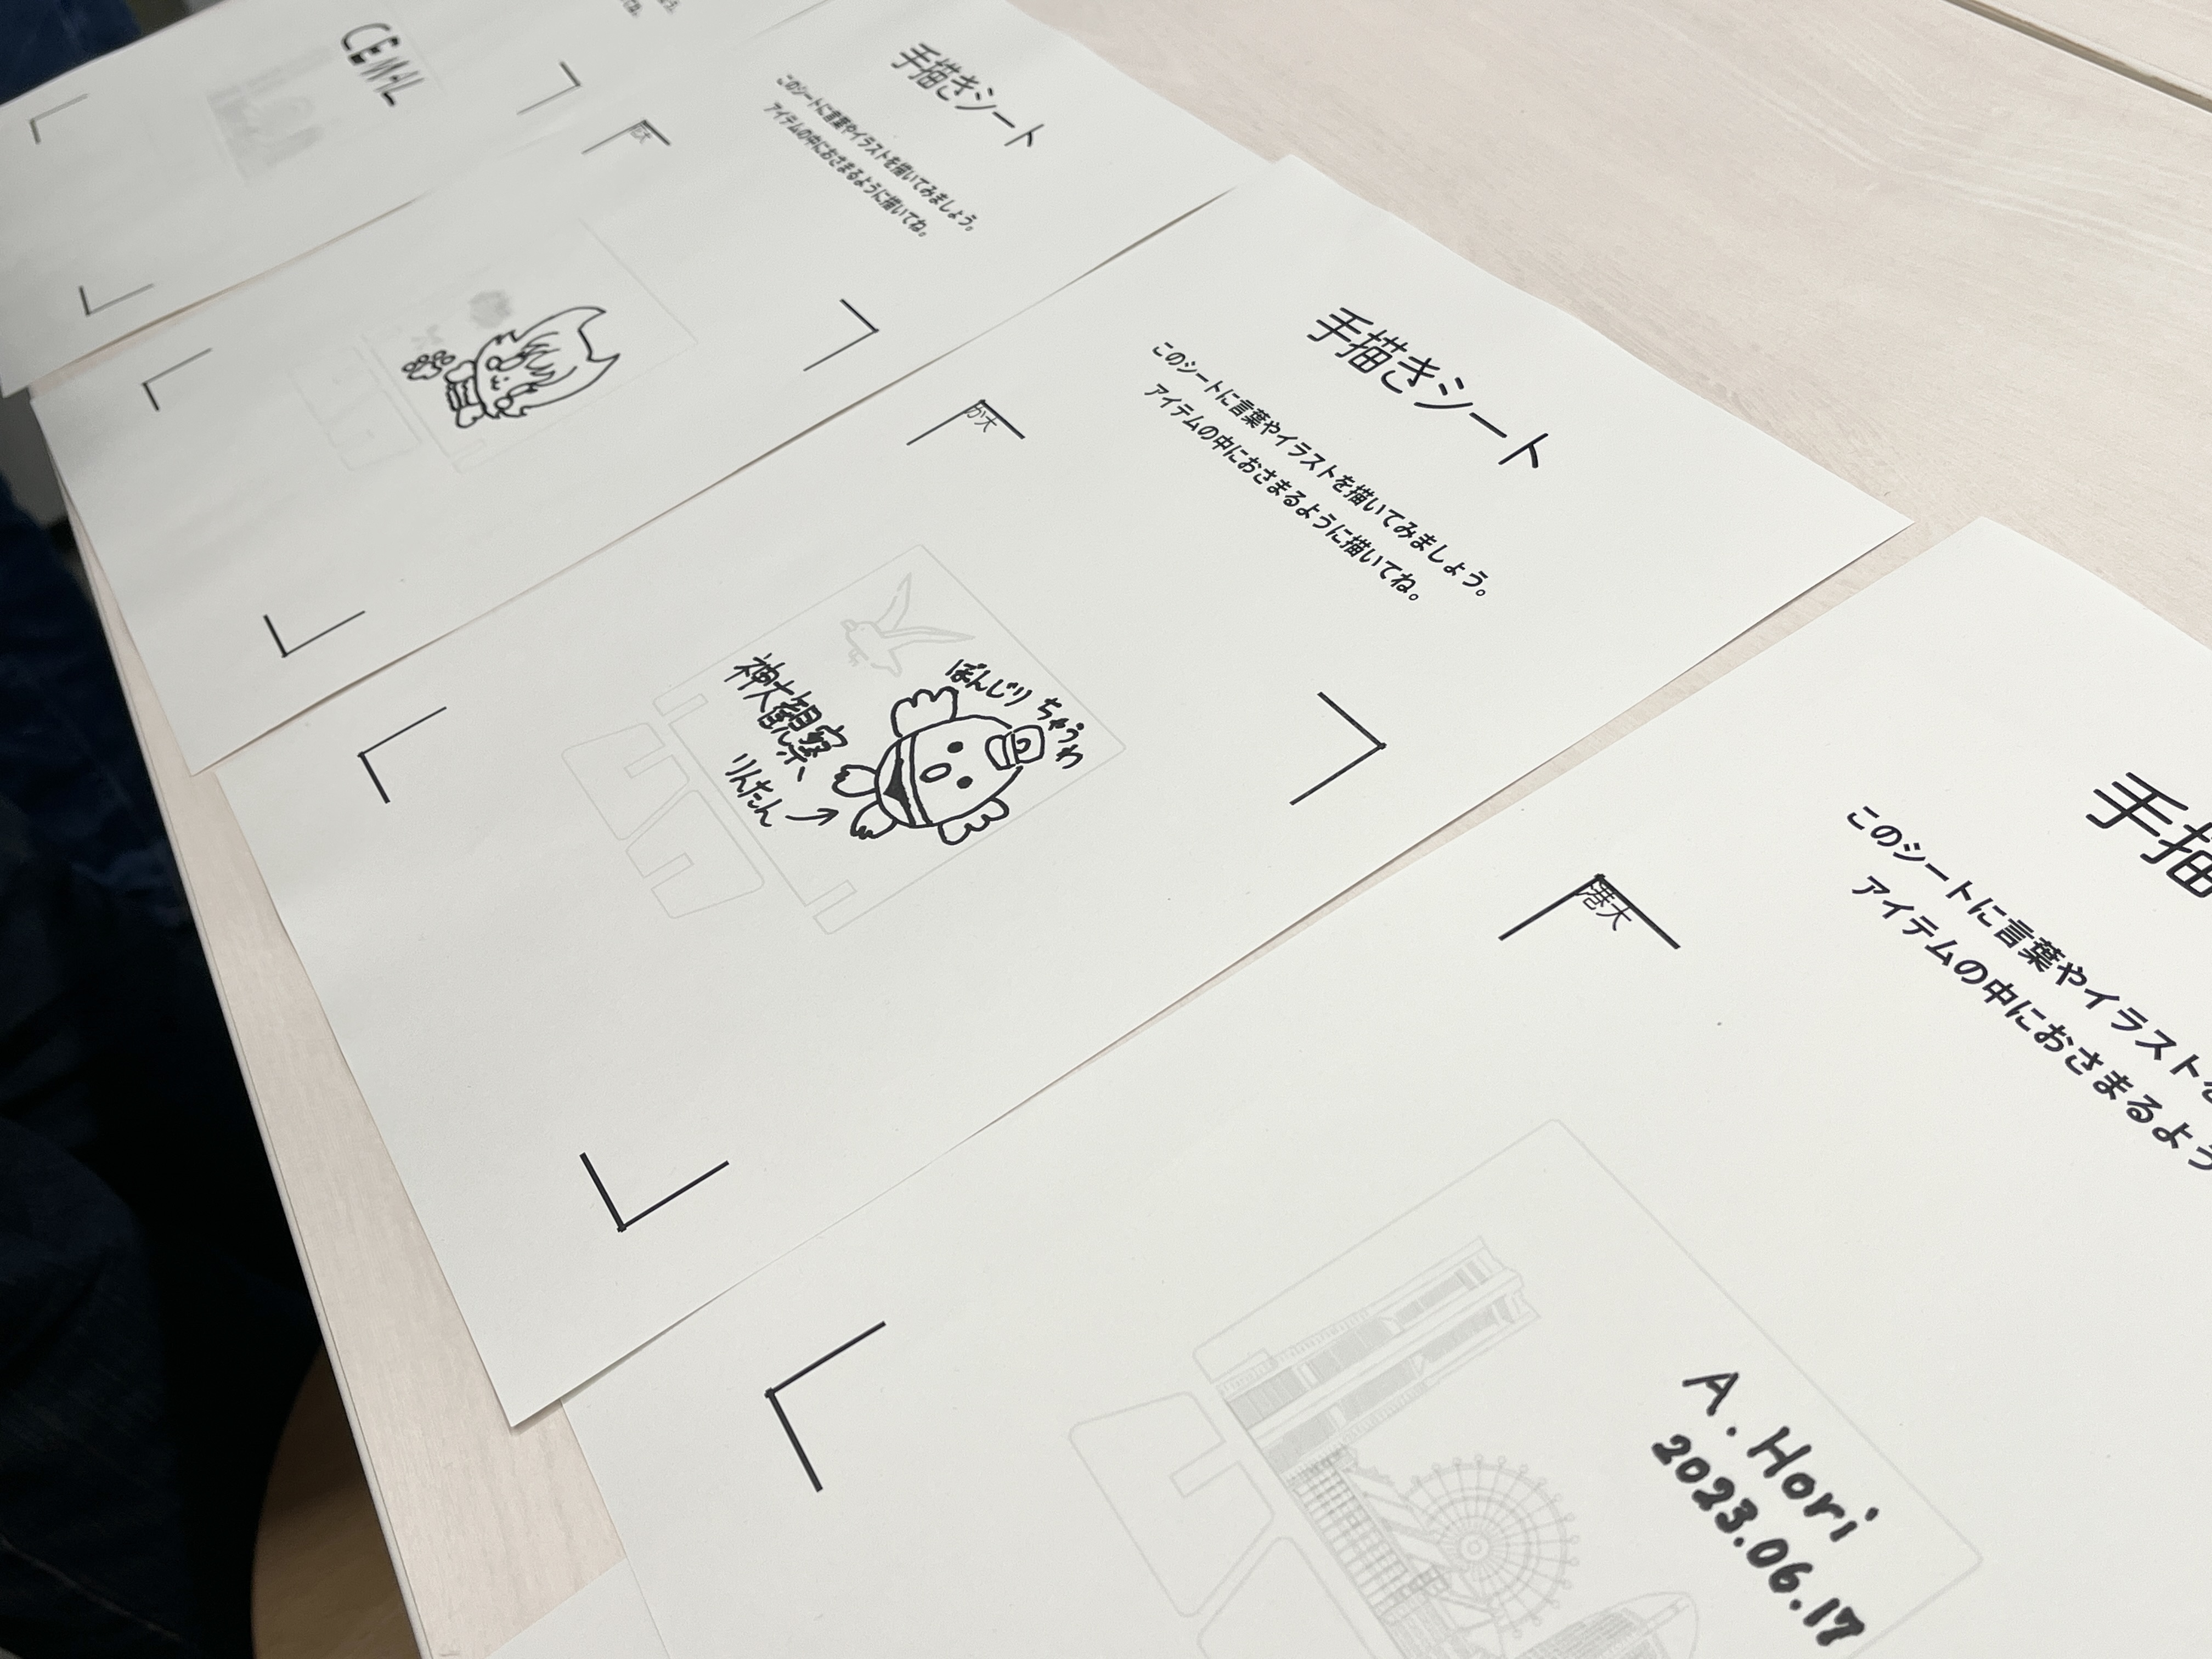 CEMIL
手描きシート
このシートに言葉やイラストを描いてみましょう。
アイテムの中におさまるように描いてね。
手描きシート
このシートに言葉やイラストを描いてみましょう。
アイテムの中におさまるように描いてね。
か大
ぼんじり ちゅうわ
神大観察、
りんたん→
手描
このシートに言葉やイラストを
アイテムの中におさまるよう
港大
A. Hori
2023.06.17